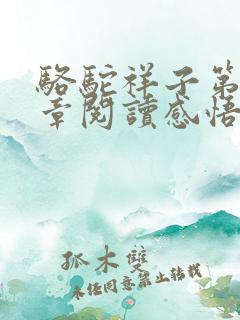 駱駝祥子第
章閱讀感悟
孤木雙
未經同意禁止轉載